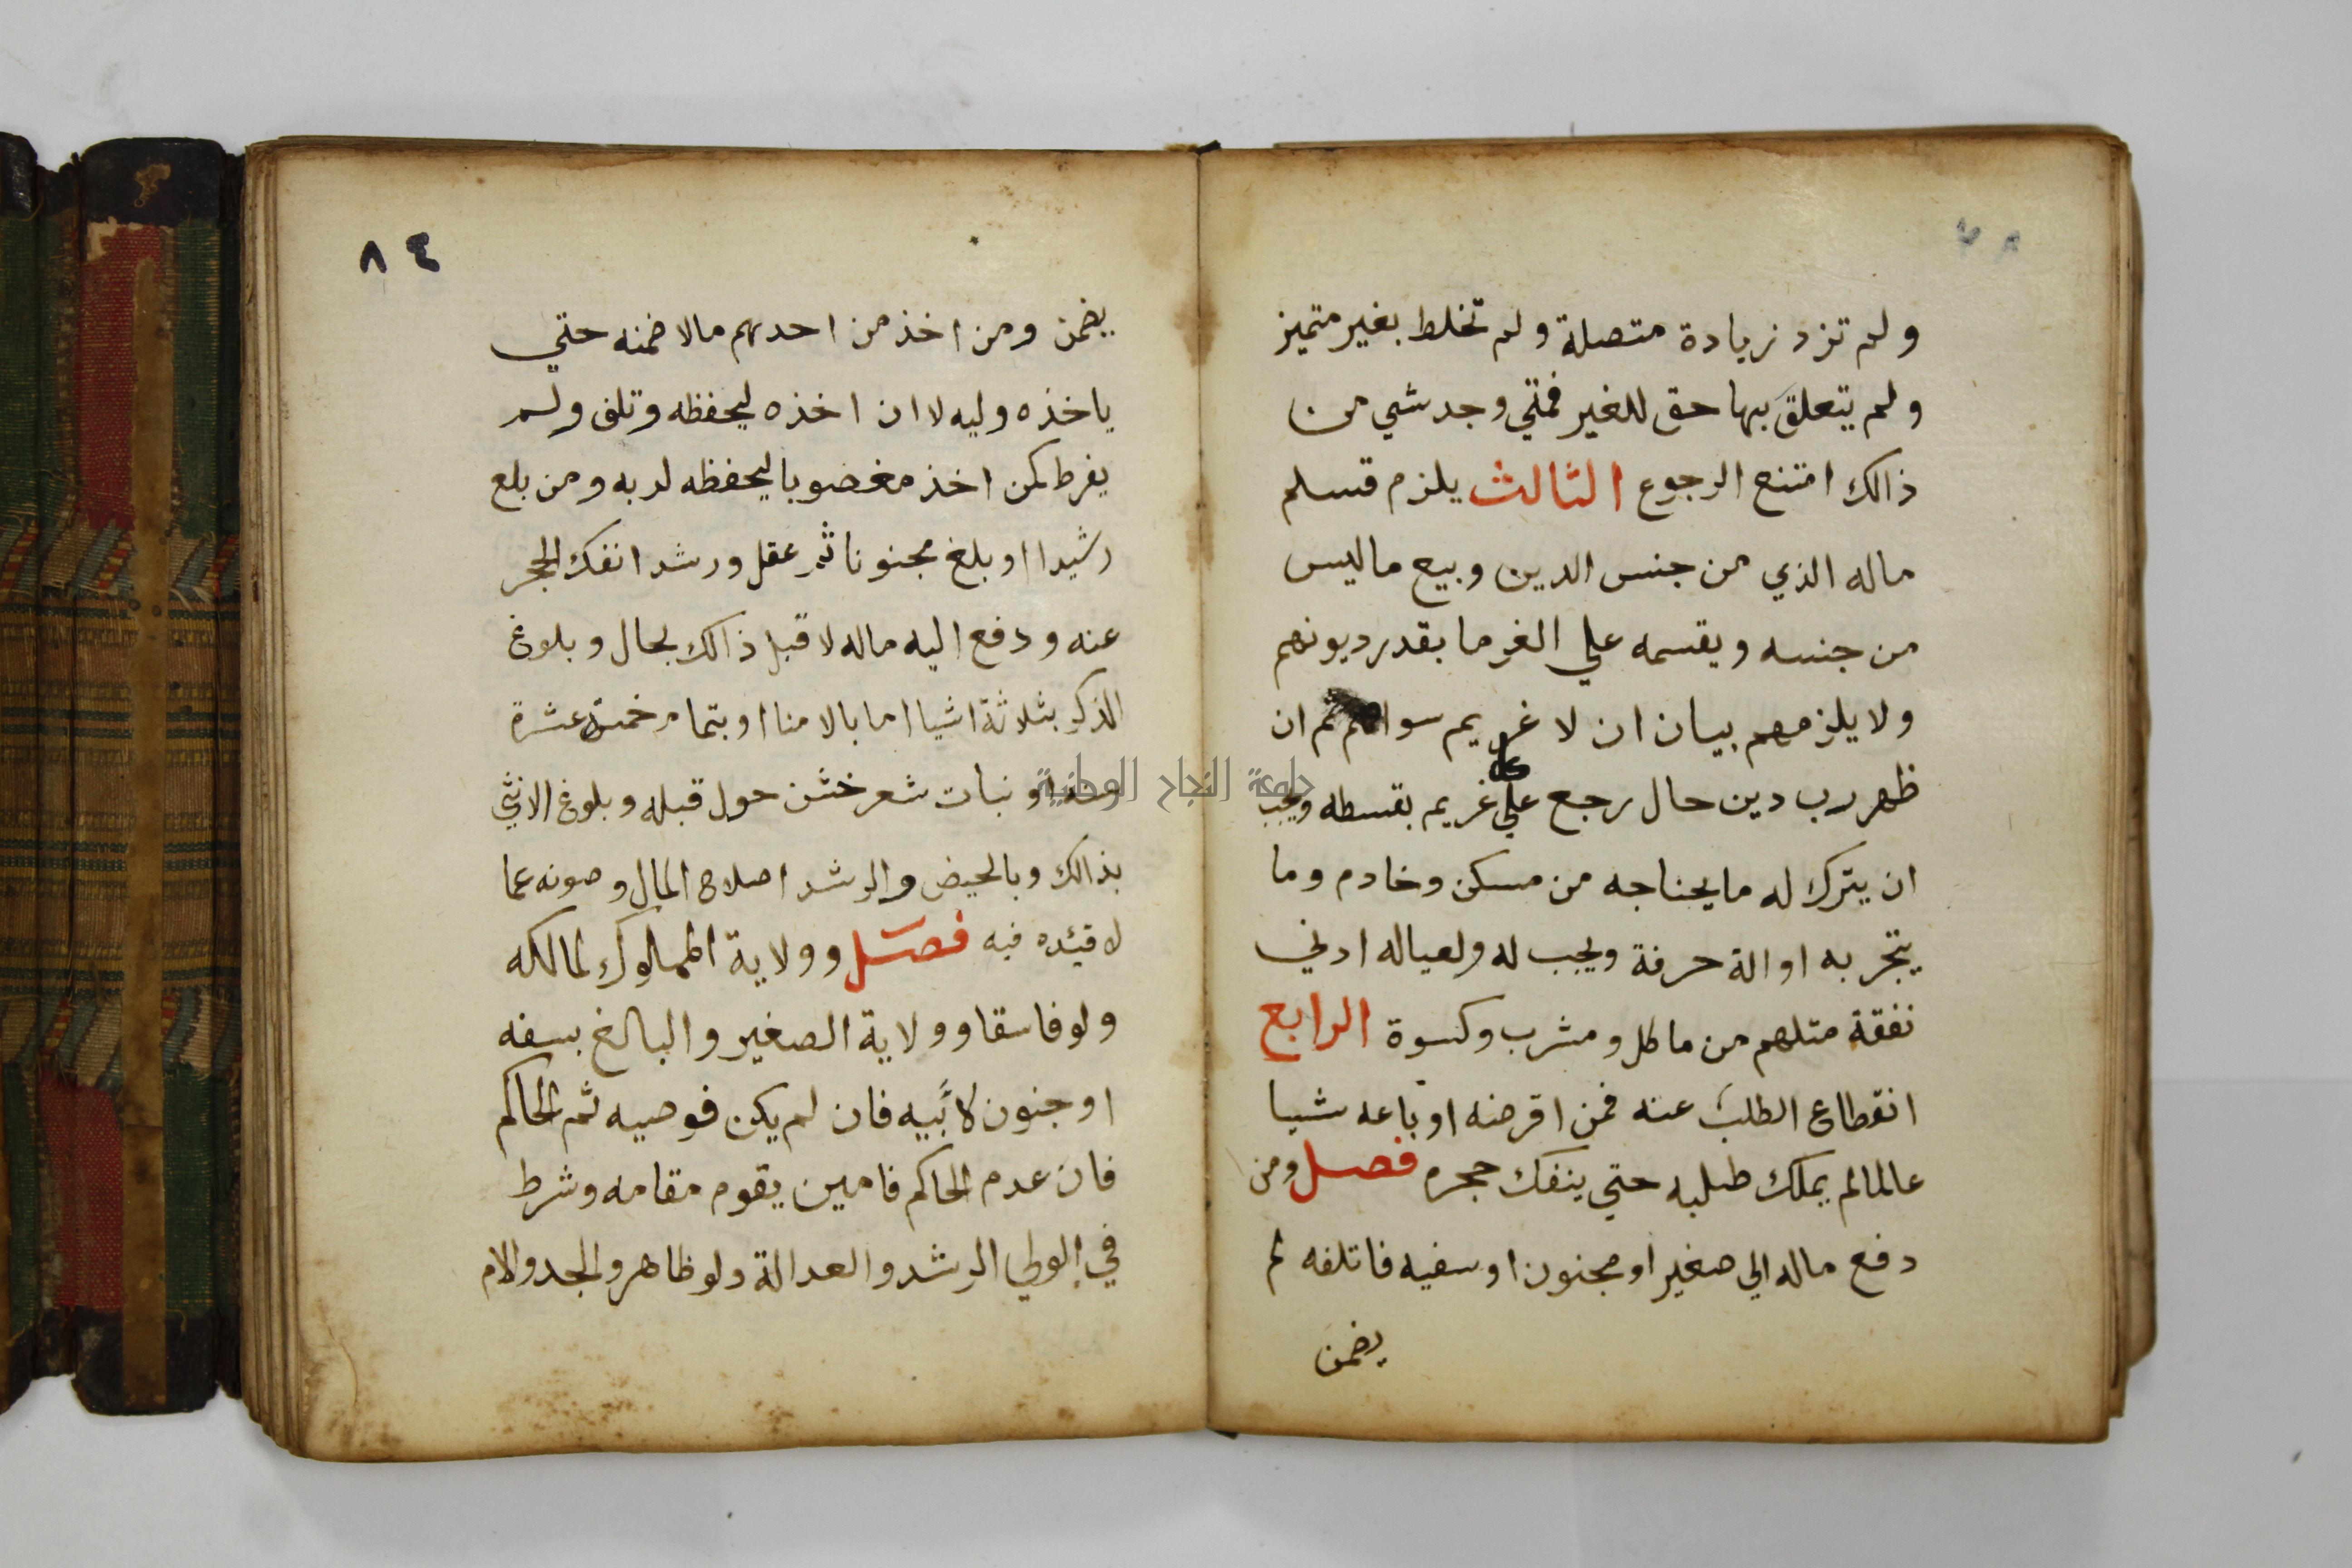 ولم تزد زيادة متصلة ولم تخلط بغير متميز
ولم يتعلق بها حق للغير فمتي وجد شي من
ذالك امتنع الرجوع الثالث يلزم قسلم
ماله الذي من جنس الدين وبيع ما ليس
من جنسه ويقسمه علي الغرما بقدر ديونهم
ولا يلزمهم بيان ان لا غريم سواهم ثم ان
ظهر رب دين حال رجع علي كل غريم بقسطه ويجب
ان يترك له ما يحتاجه من مسكن وخادم وما
يتجر به او الة حرفة ويجب له ولعياله ادني
نفقة مثلهم من ماكل ومشرب وكسوة الرابع
انقطاع الطلب عنه فمن اقرضه او باعه شيا
عالما لم يملك طلبه حتي ينفك حجره فصل ومن
دفع ماله الي صغير او مجنون او سفيه فاتلفه لم
يضمن
٨٤
يضمن ومن اخذ من احدهم مالا ضمنه حتي
ياخذه وليه لا ان اخذه ليحفظه وتلف ولم
يفرط كمن اخذ مغصوبا ليحفظه لربه ومن بلع
رشيدا او بلغ مجنونا ثم عقل ورشد انفك الحجر
عنه ودفع اليه ماله لا قبل ذالك بحال وبلوغ
الذكر بثلاثة اشيا اما بالامنا او بتمام خمسة عشرة
سنة او نبات شعر خشن حول قبله وبلوغ الانثي
بذالك وبالحيض والرشد اصلاح المال وصونه عما
لا فيئده فيه فصل وولاية المملوك لمالكه
ولو فاسقا وولاية الصغير والبالغ بسفه
او جنون لابيه فان لم يكن فوصيه ثم الحاكم
فان عدم الحاكم فامين يقوم مقامه وشرط
في الولي الرشد والعدالة ولو ظاهر والجد والام
جامعة النجاح الوطنية